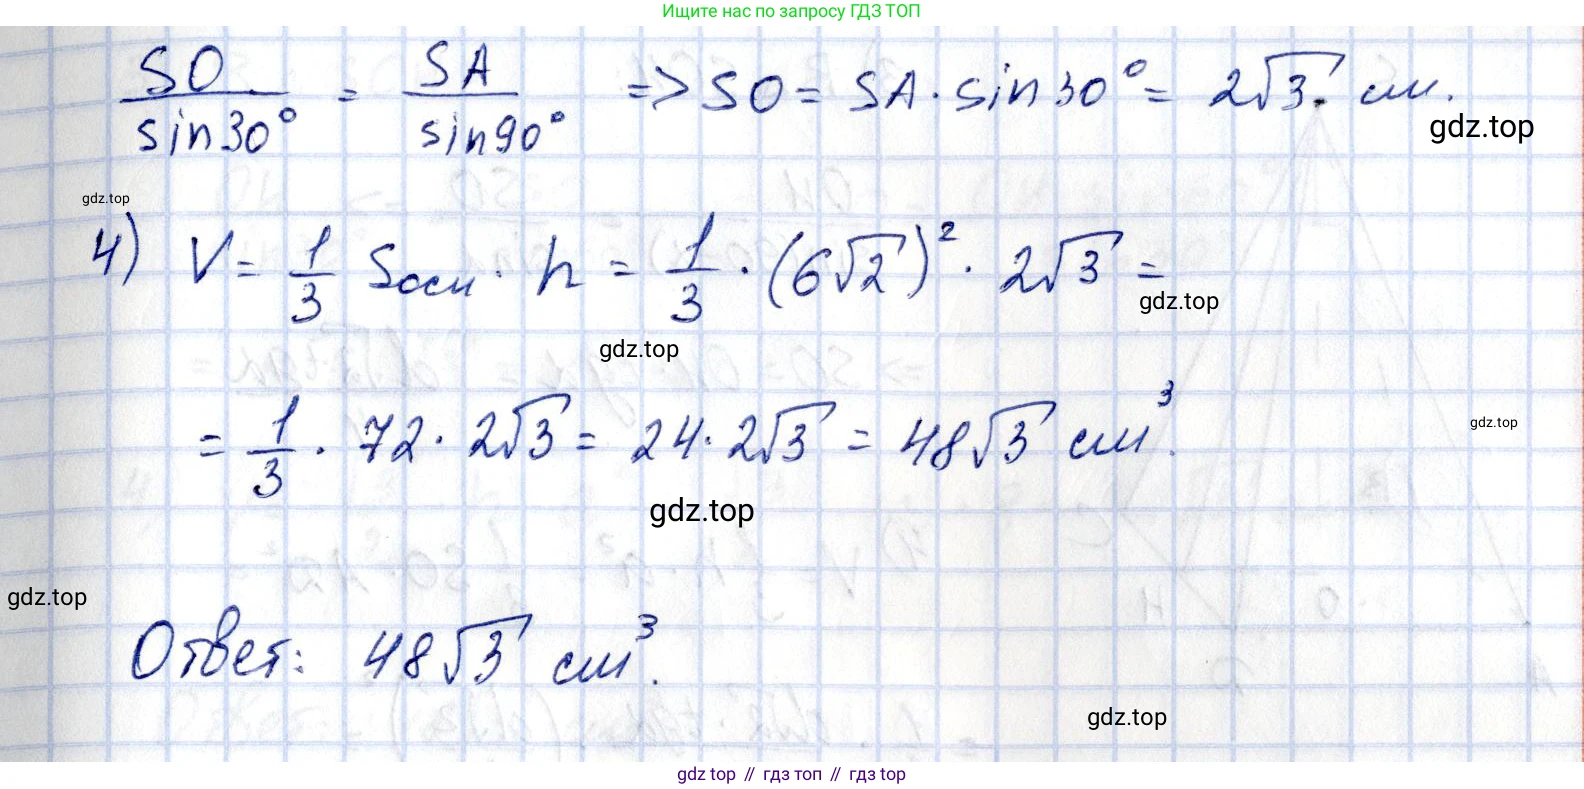 Ищите нас по запросу ГДЗ ТОП
SO/sin30° = SA/sin90° => SO = SA · sin30° = 2√3 см.
gdz.top
gdz.top
4) V = 1/3 Sосн · h = 1/3 · (6√2)² · 2√3 =
gdz.top
gdz.top
= 1/3 · 72 · 2√3 = 24 · 2√3 = 48√3 см³.
gdz.top
gdz.top
gdz.top
Ответ: 48√3 см³.
gdz.top
gdz top // гдз топ // гдз top